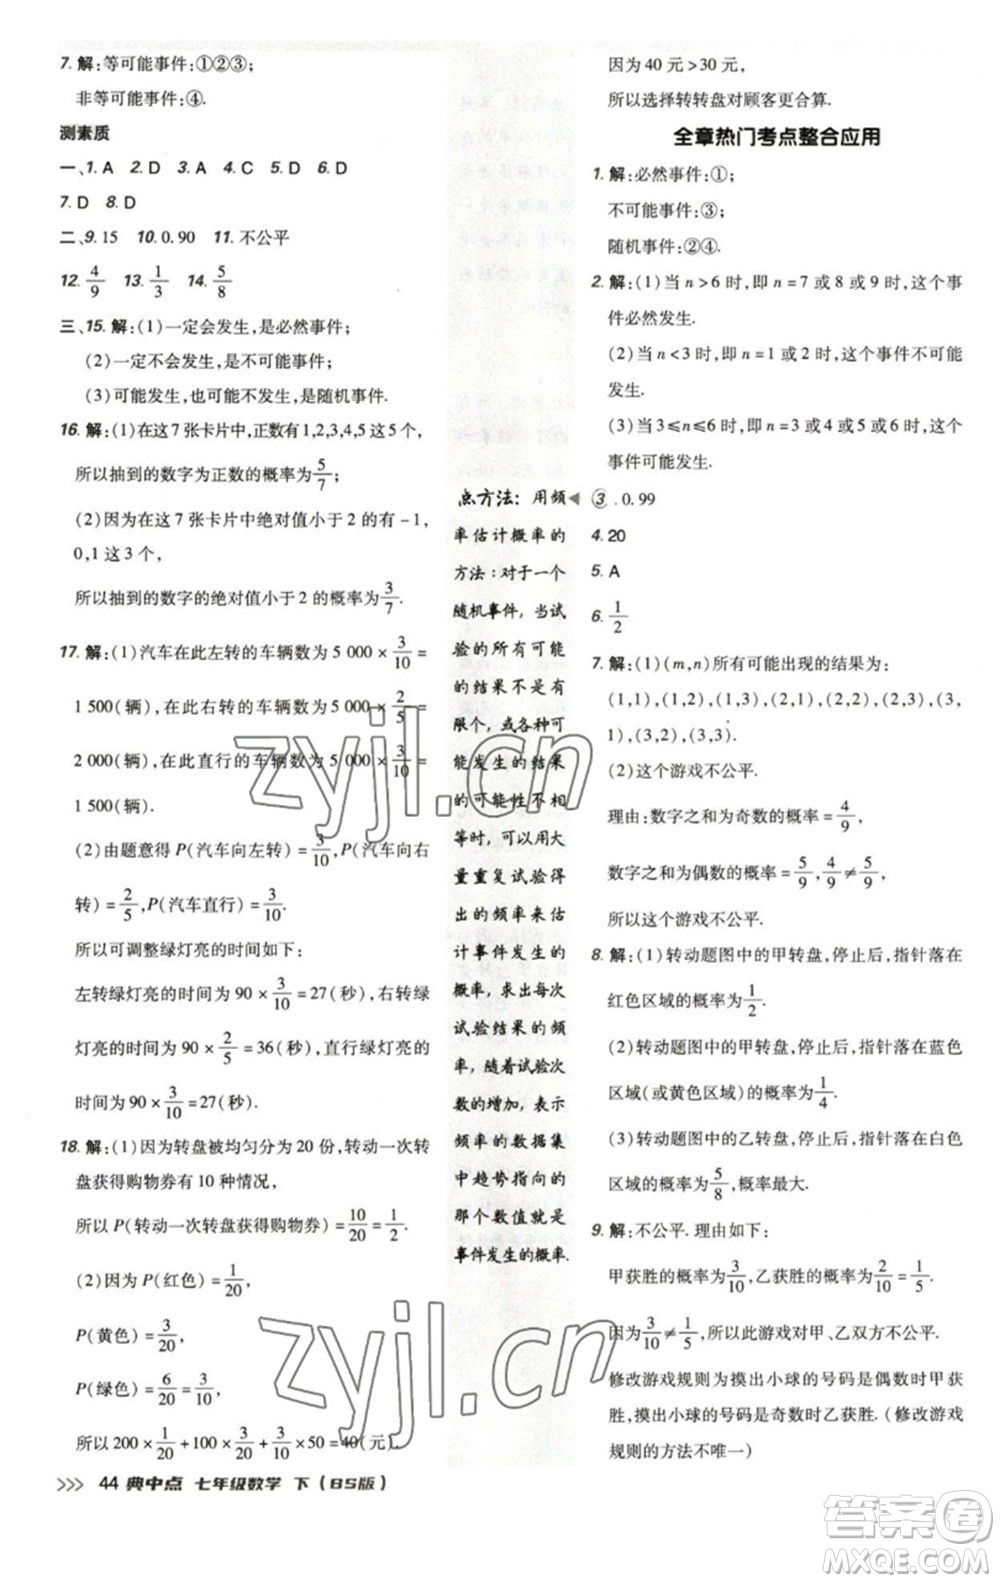 7. 解:等可能事件:①②③;
非等可能事件:④.
测素质
一、1. A 2. D 3. A 4. C 5. D 6. D
7. D 8. D
二、9. 15 10. 0.90 11. 不公平
12. 4/9 13. 1/3 14. 5/8
三、15. 解:(1)一定会发生,是必然事件;
(2)一定不会发生,是不可能事件;
(3)可能发生,也可能不发生,是随机事件.
16. 解:(1)在这 7 张卡片中,正数有1,2,3,4,5 这 5 个,
所以抽到的数字为正数的概率为5/7;
(2)因为在这 7 张卡片中绝对值小于 2 的有 -1,
0,1 这 3 个,
所以抽到的数字的绝对值小于 2 的概率为3/7.
17. 解:(1)汽车在此左转的车辆数为 5 000 × 3/10 =
1 500(辆),在此右转的车辆数为 5 000 × 2/5 =
2 000(辆),在此直行的车辆数为 5 000 × 3/10 =
1 500(辆).
(2)由题意得 P(汽车向左转) = 3/10, P(汽车向右
转) = 2/5, P(汽车直行) = 3/10.
所以可调整绿灯亮的时间如下:
左转绿灯亮的时间为 90 × 3/10 = 27(秒),右转绿
灯亮的时间为 90 × 2/5 = 36(秒),直行绿灯亮的
时间为 90 × 3/10 = 27(秒).
18. 解:(1)因为转盘被均匀分为 20 份,转动一次转
盘获得购物券有 10 种情况,
所以 P(转动一次转盘获得购物券) = 10/20 = 1/2.
(2)因为 P(红色) = 1/20,
P(黄色) = 3/20,
P(绿色) = 6/20 = 3/10,
所以 200 × 1/20 + 100 × 3/20 + 3/10 × 50 = 40(元).
点方法:用频
率估计概率的
方法:对于一个
随机事件,当试
验的所有可能
的结果不是有
限个,或各种可
能发生的结果
的可能性不相
等时,可以用大
量重复试验得
出的频率来估
计事件发生的
概率,求出每次
试验结果的频
率,随着试验次
数的增加,表示
频率的数据集
中趋势指向的
那个数值就是
事件发生的概率.
因为 40 元 > 30 元,
所以选择转转盘对顾客更合算.
全章热门考点整合应用
1. 解:必然事件:①;
不可能事件:③;
随机事件:②④.
2. 解:(1)当 n > 6 时,即 n = 7 或 8 或 9 时,这个事
件必然发生.
(2)当 n < 3 时,即 n = 1 或 2 时,这个事件不可能
发生.
(3)当 3 ≤ n ≤ 6 时,即 n = 3 或 4 或 5 或 6 时,这个
事件可能发生.
③. 0.99
4. 20
5. A
6. 1/2
7. 解:(1)(m,n)所有可能出现的结果为:
(1,1),(1,2),(1,3),(2,1),(2,2),(2,3),(3,
1),(3,2),(3,3).
(2)这个游戏不公平.
理由:数字之和为奇数的概率 = 4/9,
数字之和为偶数的概率 = 5/9, 4/9 ≠ 5/9,
所以这个游戏不公平.
8. 解:(1)转动题图中的甲转盘,停止后,指针落在
红色区域的概率为1/2.
(2)转动题图中的甲转盘,停止后,指针落在蓝色
区域(或黄色区域)的概率为1/4.
(3)转动题图中的乙转盘,停止后,指针落在白色
区域的概率为5/8,概率最大.
9. 解:不公平. 理由如下:
甲获胜的概率为3/10,乙获胜的概率为2/10 = 1/5,
因为3/10 ≠ 1/5,所以此游戏对甲、乙双方不公平.
修改游戏规则为摸出小球的号码是偶数时甲获
胜,摸出小球的号码是奇数时乙获胜.(修改游戏
规则的方法不唯一)
>>> 44 典中点 七年级数学 下(BS版)
zyjl.cn
zyjl.cn
答案圈
MXQE.COM